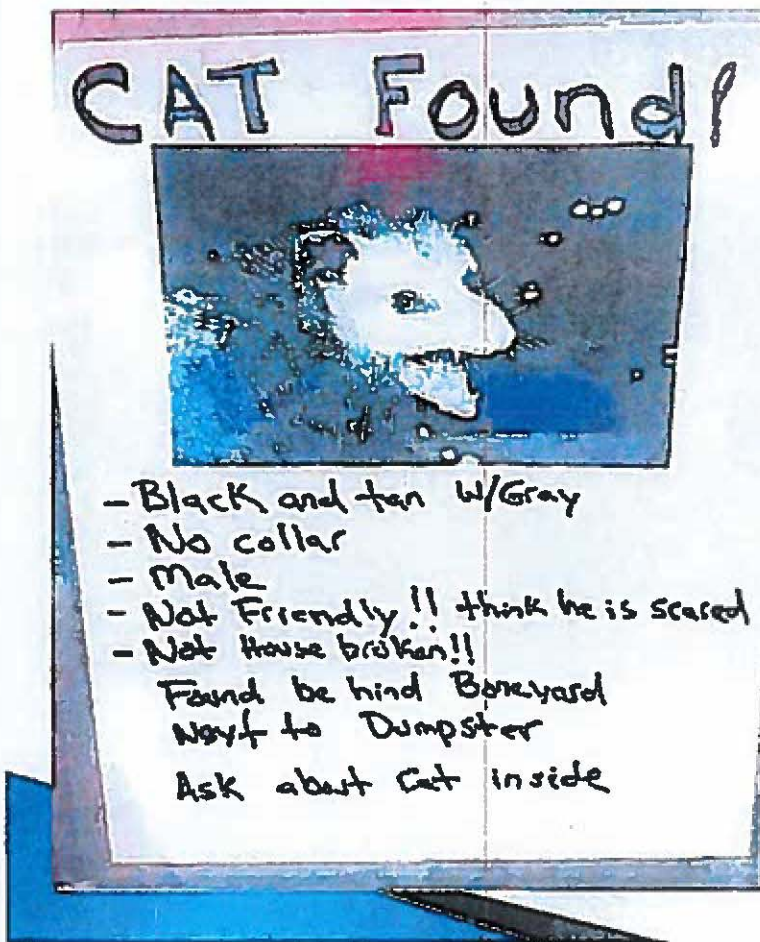 CAT Found!
- Black and tan w/Gray
- No collar
- Male
- Not Friendly!! think he is scared
- Not House broken!!
Found be hind Boneyard
Next to Dumpster
Ask about Cat inside